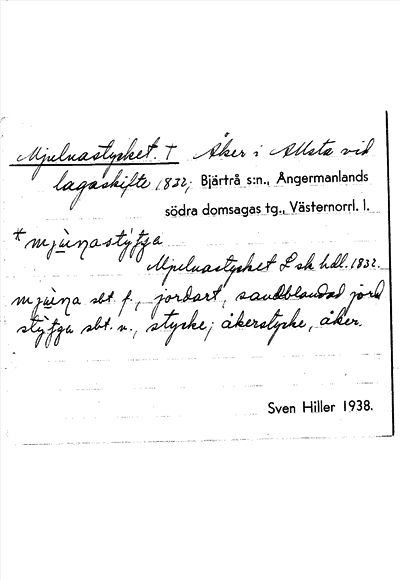 Mjuluastycket. † Åker i Allsta vid
lagaskifte 1832, Bjärtrå s:n., Ångermanlands
södra domsagas tg., Västernorrl. l.
*
Mjuluastycket L sk hdl. 1832.
sbt. f., jordart, sandblandad jord
sbt. n., stycke; åkerstycke, åker.
Sven Hiller 1938.